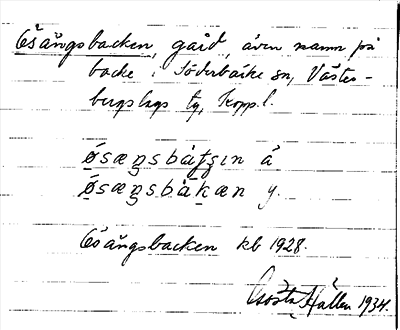 Ösängsbacken, gård, även namn på
backe i Söderbärke sn, Väster-
bergslags tg, Kopp. l.
øsæŋsbàʃʒɩn ä
øsæŋsbàkæn y.
Ösängsbacken kb 1928.
Gösta Hallén 1934.